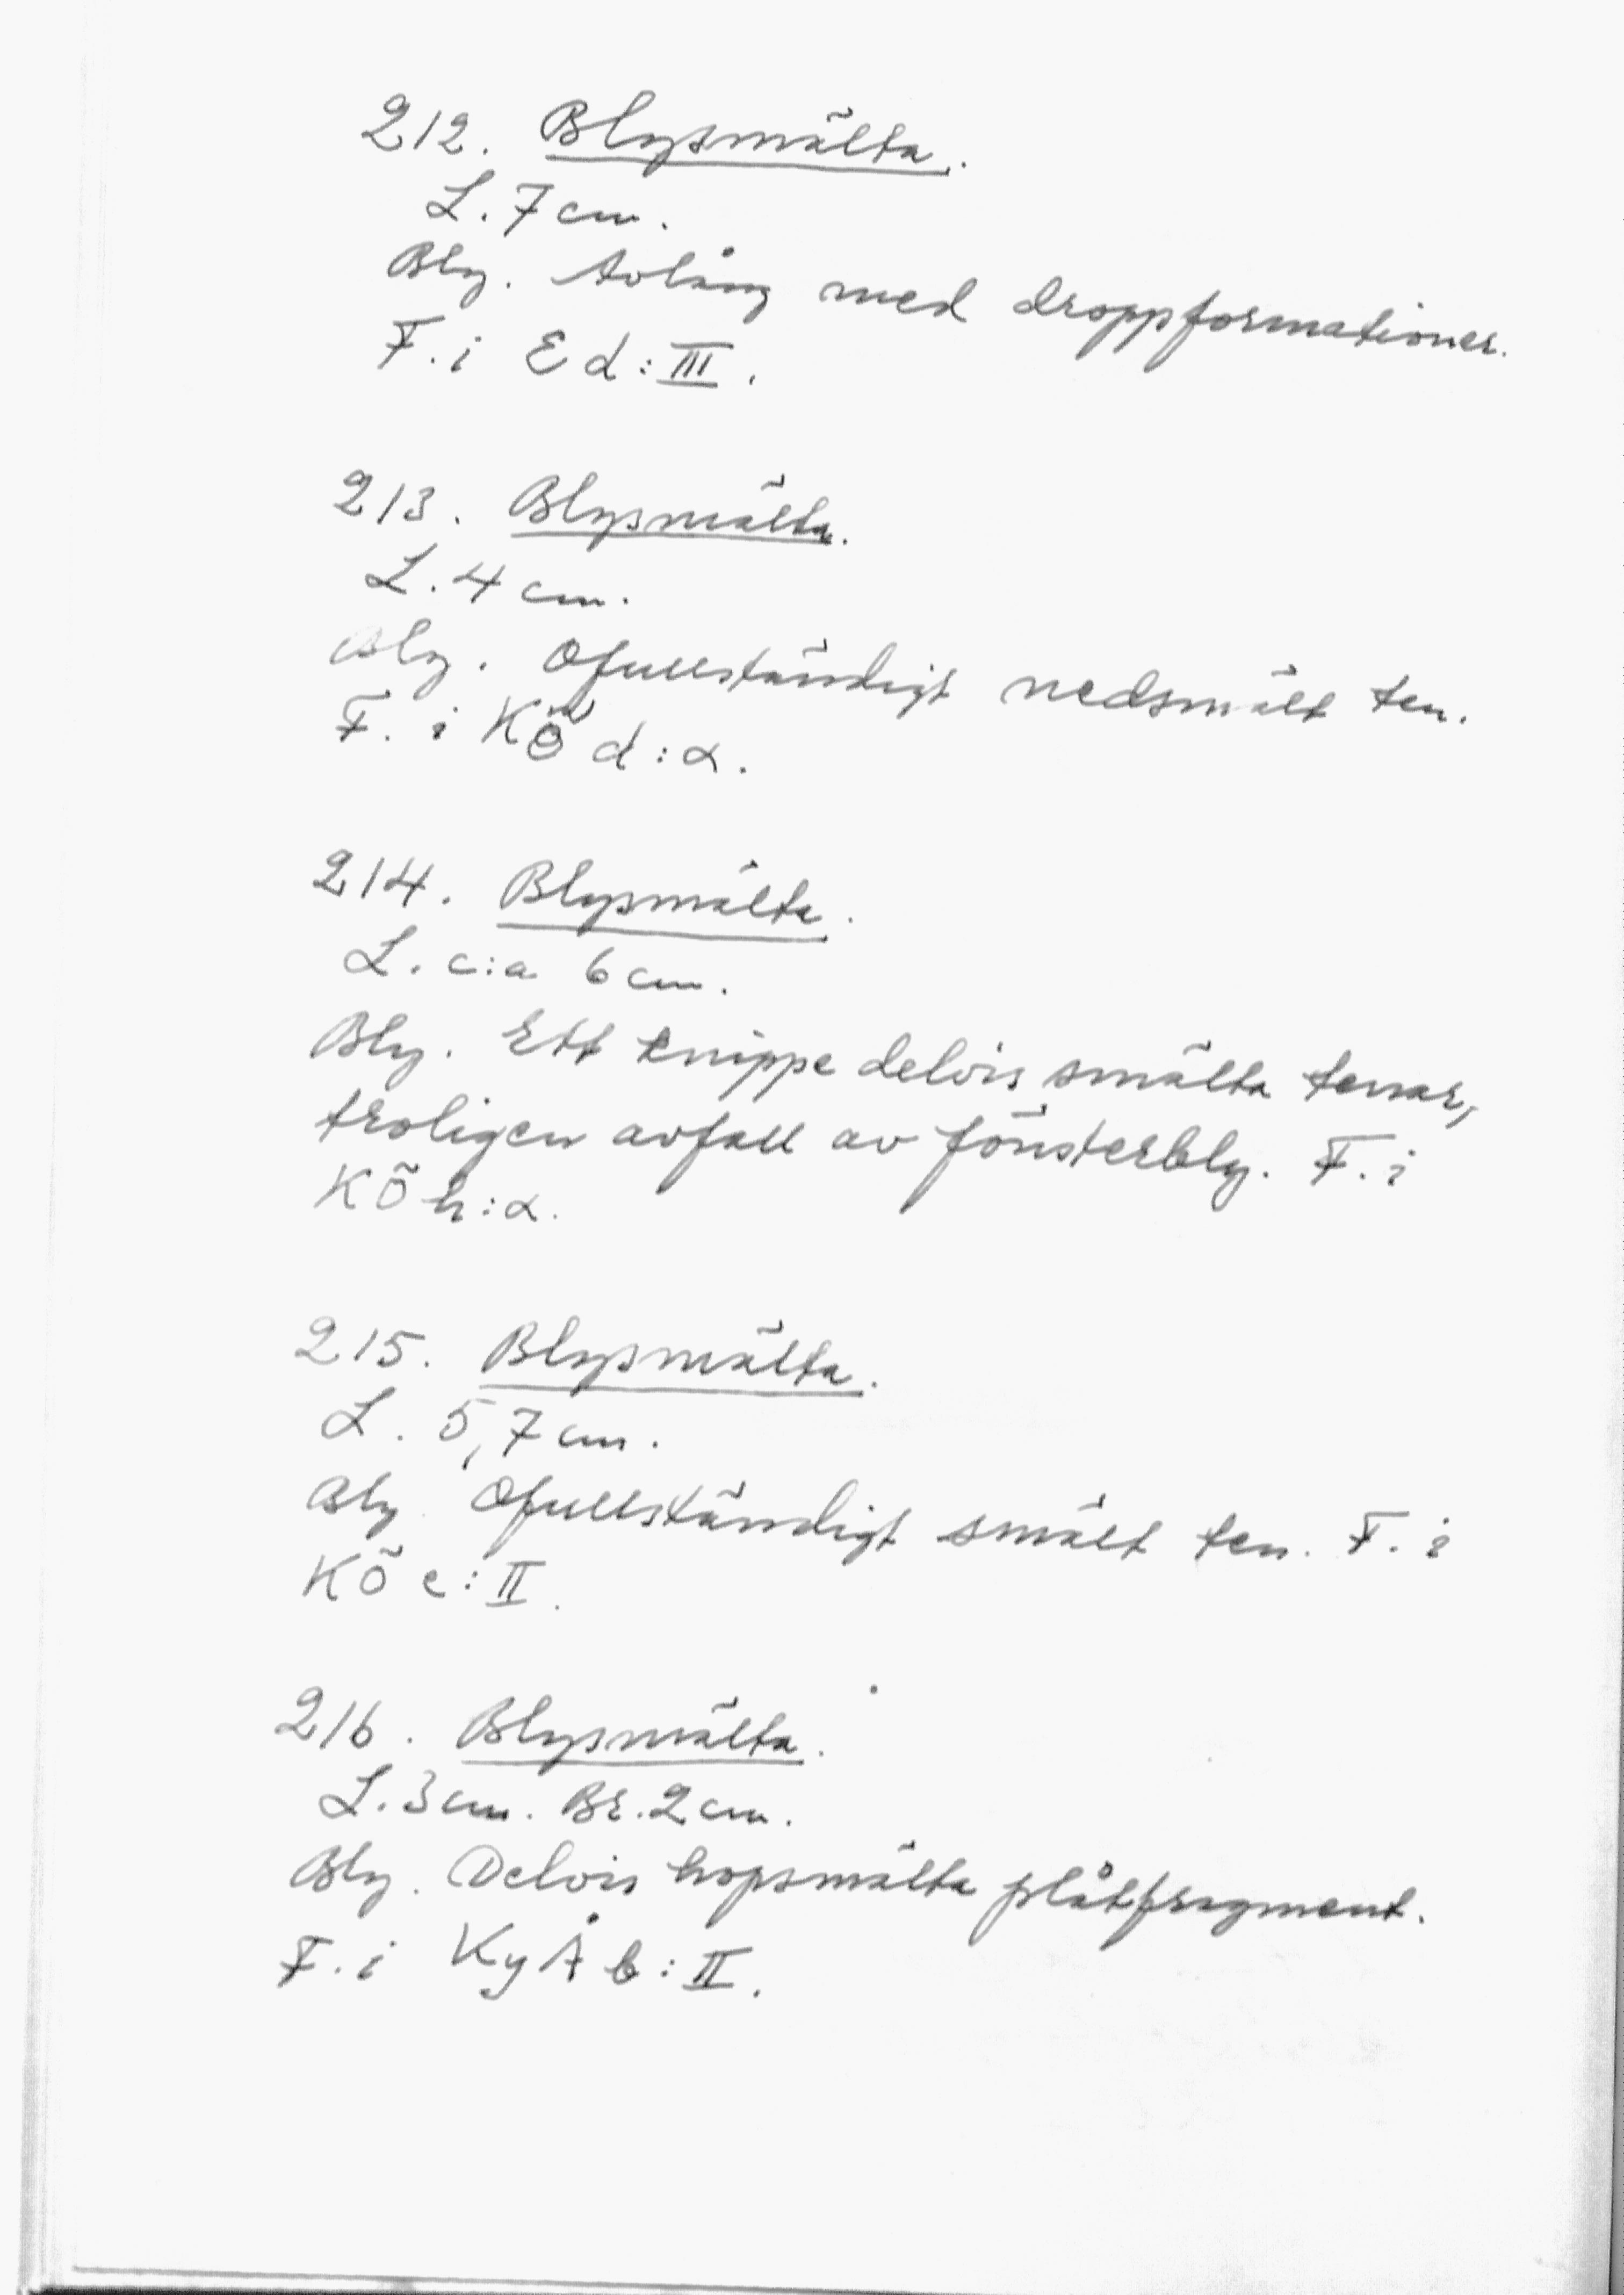 212. Blysmälta.
L. 7 cm.
Bly. Avlång med droppformationer.
F. i E d: III.
213. Blysmälta.
L. 4 cm.
Bly. Ofullständigt nedsmält ten.
F. i KÖ d: α.
214. Blysmälta.
L. c:a 6 cm.
Bly. Ett knippe delvis smälta tenar,
troligen avfall av fönsterbly. F. i
KÖ h: α.
215. Blysmälta.
L. 5,7 cm.
Bly. Ofullständigt smält ten. F. i
KÖ e: II.
216. Blysmälta.
L. 3 cm. Br. 2 cm.
Bly. Delvis hopsmälta plåtfragment.
F. i KyÅ b: II.